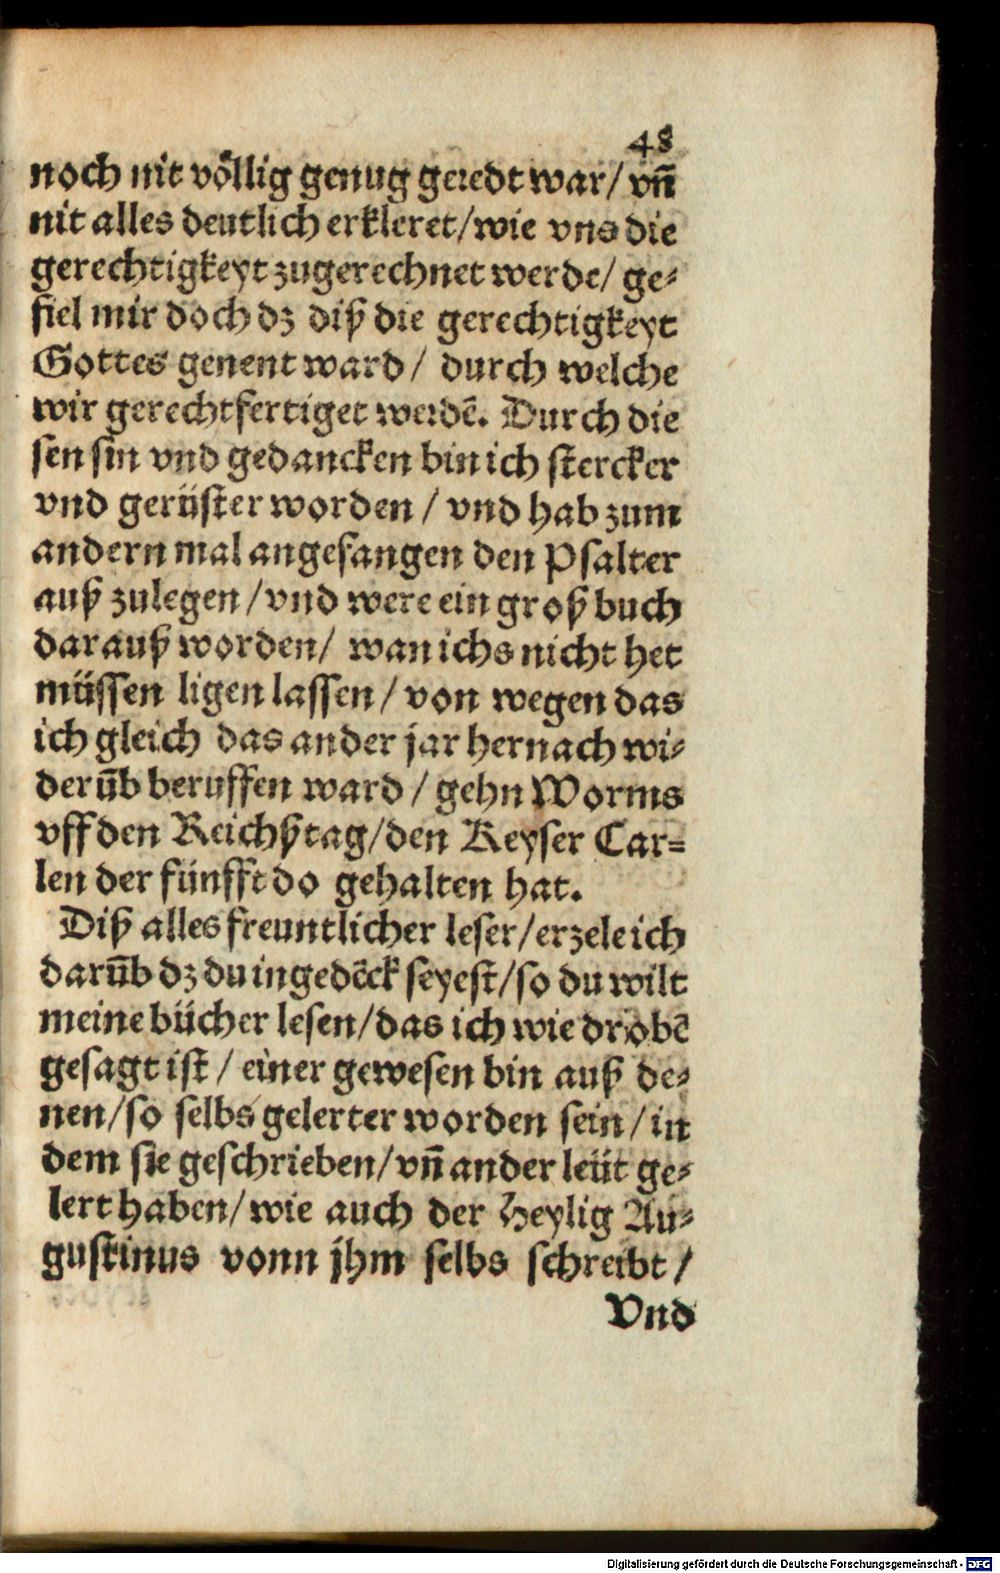 48
noch nit völlig genug geredt war/ vñ
nit alles deutlich erkleret/ wie vns die
gerechtigkeyt zugerechnet werde/ ge-
fiel mir doch dz diß die gerechtigkeyt
Gottes genent ward/ durch welche
wir gerechtfertiget werdē. Durch die
sen sin vnd gedancken bin ich stercker
vnd gerüster worden/ vnd hab zum
andern mal angefangen den Psalter
auß zulegen/ vnd were ein groß buch
darauß worden/ wan ichs nicht het
müssen ligen lassen/ von wegen das
ich gleich das ander jar hernach wi-
derūb beruffen ward/ gehn Worms
vff den Reichßtag/ den Keyser Car-
len der fünfft do gehalten hat.
Diß alles freuntlicher leser/ erzele ich
darūb dz du ingedēck seyest/ so du wilt
meine bücher lesen/ das ich wie drobē
gesagt ist/ einer gewesen bin auß de-
nen/ so selbs gelerter worden sein/ in
dem sie geschrieben/ vñ ander leüt ge-
lert haben/ wie auch der Heylig Au-
gustinus vonn jhm selbs schreibt/
Vnd
Digitalisierung gefördert durch die Deutsche Forschungsgemeinschaft - DFG